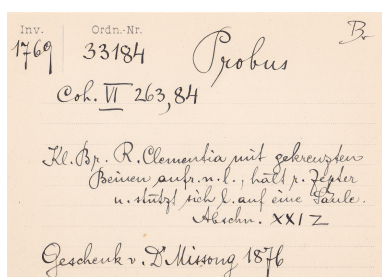 Inv. Ordn.-Nr. Br
1769 33184 Probus
Coh. VI 263,84
Kl. Br. R. Clementia mit gekreuzten
Beinen aufr. n. l., hält r. Zepter
u. stützt sich l. auf eine Säule.
Abschn. XXIZ
Geschenk v. Dr Missong 1876